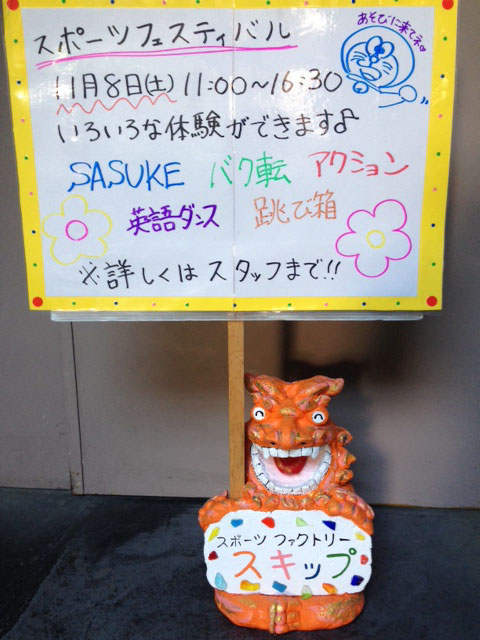 スポーツフェスティバル
あそびに来てネ
11月8日(土) 11:00〜16:30
いろいろな体験ができます♪
SASUKE バク転 アクション
英語ダンス 跳び箱
※詳しくは スタッフまで!!
スポーツ ファクトリー
スキップ